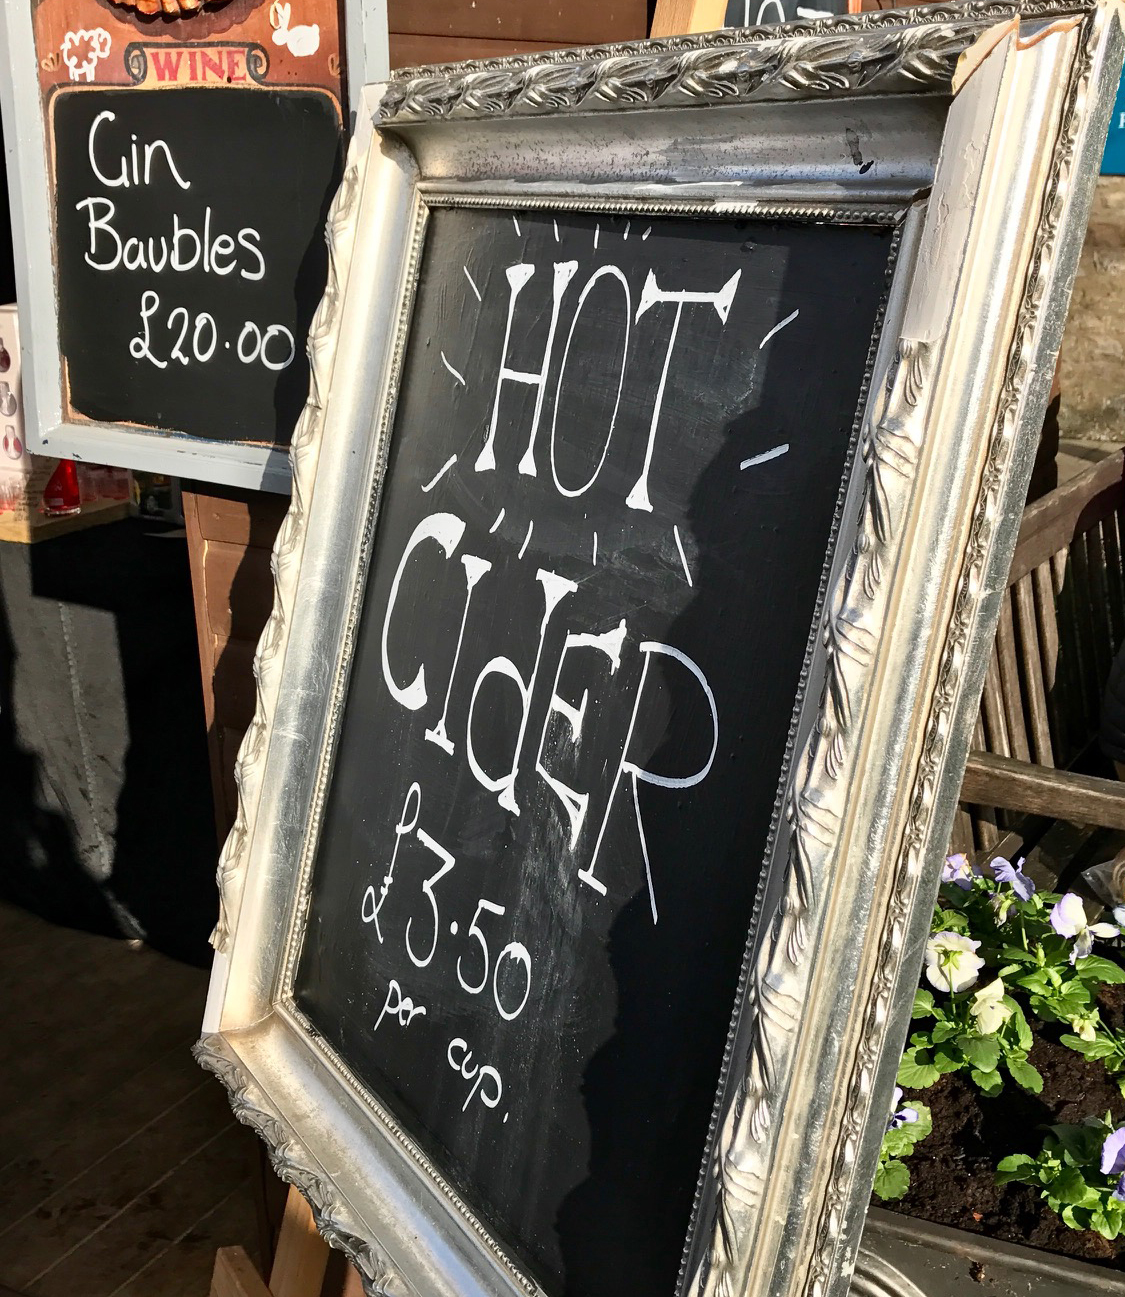 WINE
Gin
Baubles
£20.00
HOT
CIdER
£3.50
per
cup.